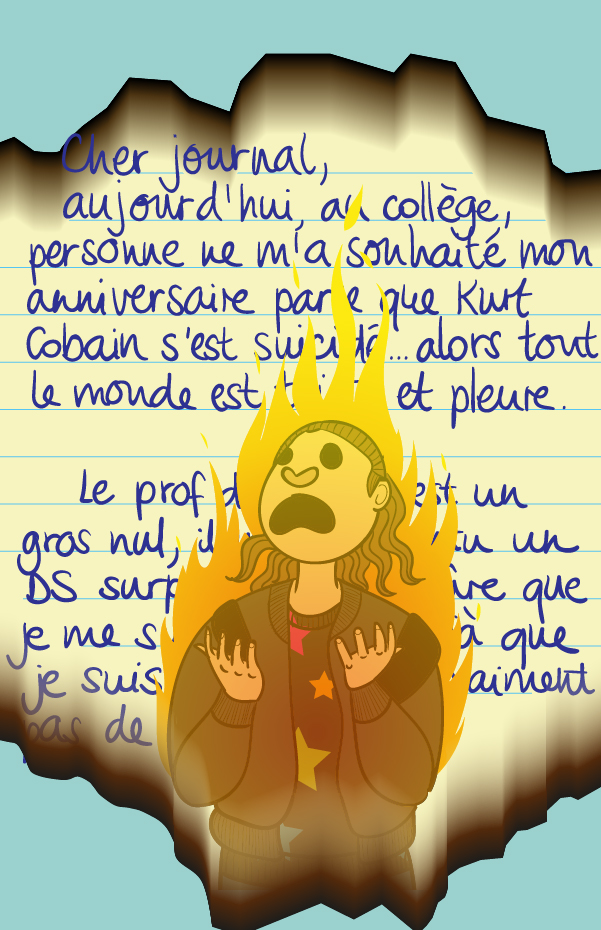 Cher journal,
aujourd'hui, au collège,
personne ne m'a souhaité mon
anniversaire parce que Kurt
Cobain s'est suicidé... alors tout
le monde est et pleure.
Le prof un
gros nul, un
DS que
je me à que
je suis
pas de